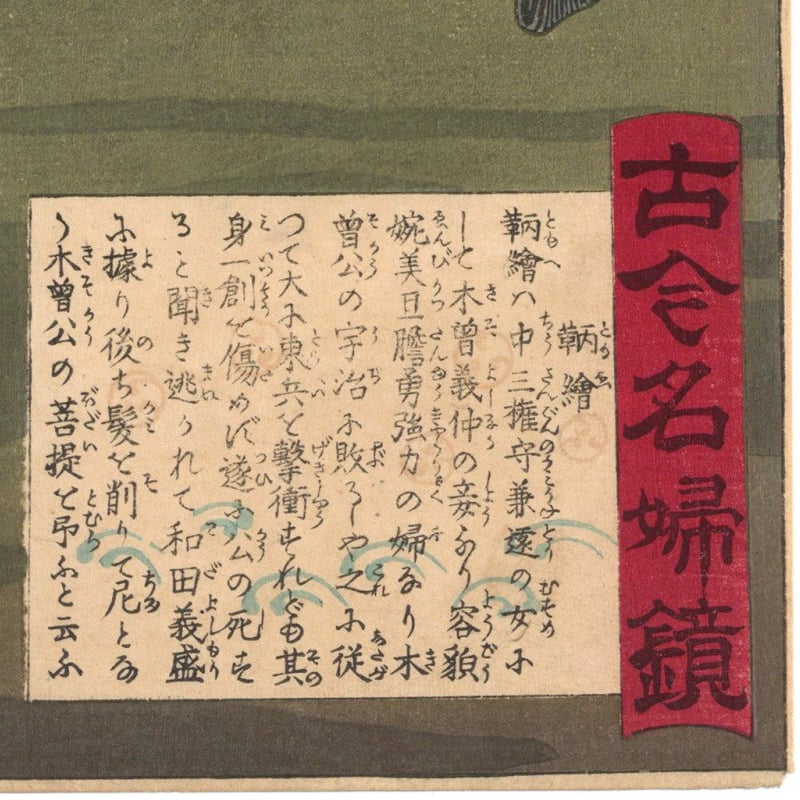 古今名婦鏡
鞆繪
鞆繪ハ中三権守兼遠の女に
して木曽義仲の妾なり容貌
婉美且膽勇強力の婦なり木
曽公の宇治に敗るゝや之に従
つて大に東兵を撃衝すれども其
身一創を傷めず遂に公の死す
ると聞き逃かれて和田義盛
に據り後ち髪を削りて尼とな
り木曽公の菩提を吊ふと云ふ